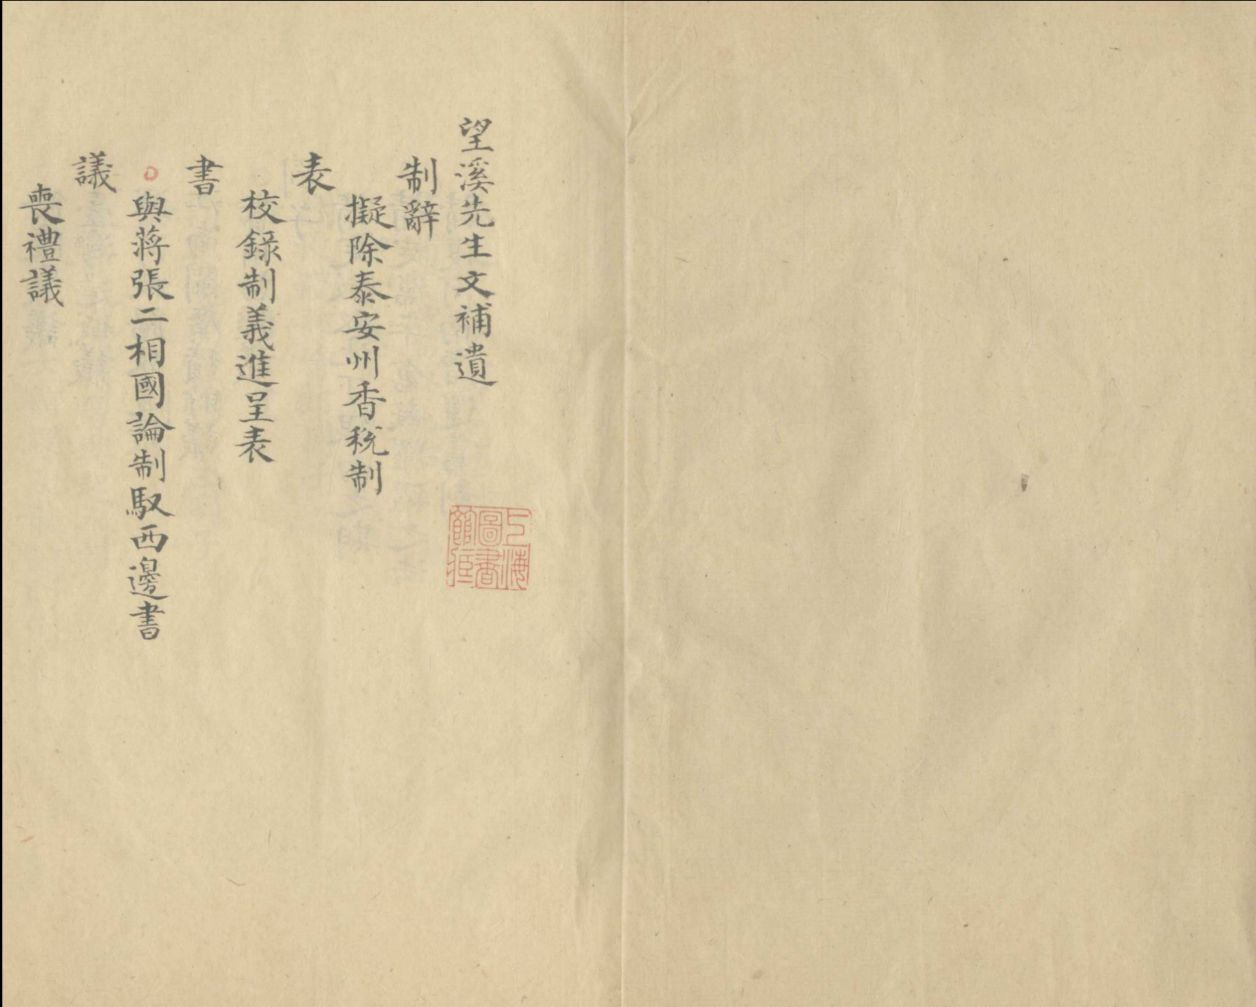 望溪先生文補遺
制辭
擬除泰安州香稅制
表
校錄制義進呈表
書
與蔣張二相國論制馭西邊書
議
喪禮議
上海圖書館藏